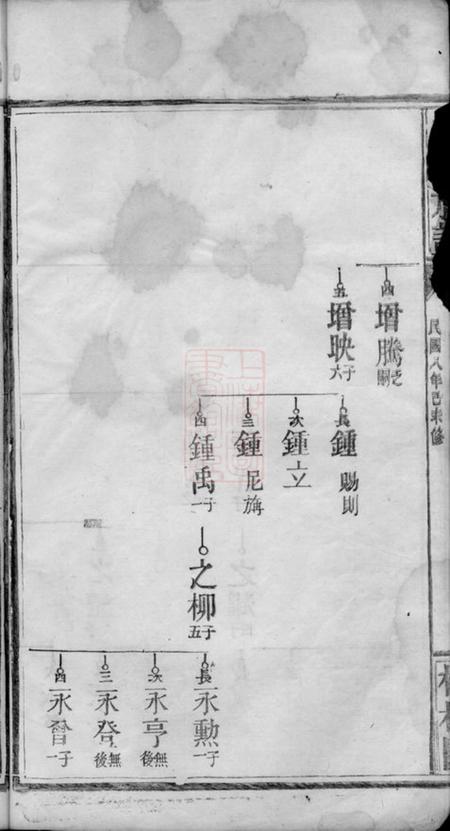 民國八年己未修
四 增騰 乏嗣
五 增映 六子
長 鍾賜則
次 鍾立
三 鍾尼旃
四 鍾禹 一子
之柳 五子
長 永勲 一子
次 永亨 無後
三 永登 無後
四 永晉 一子